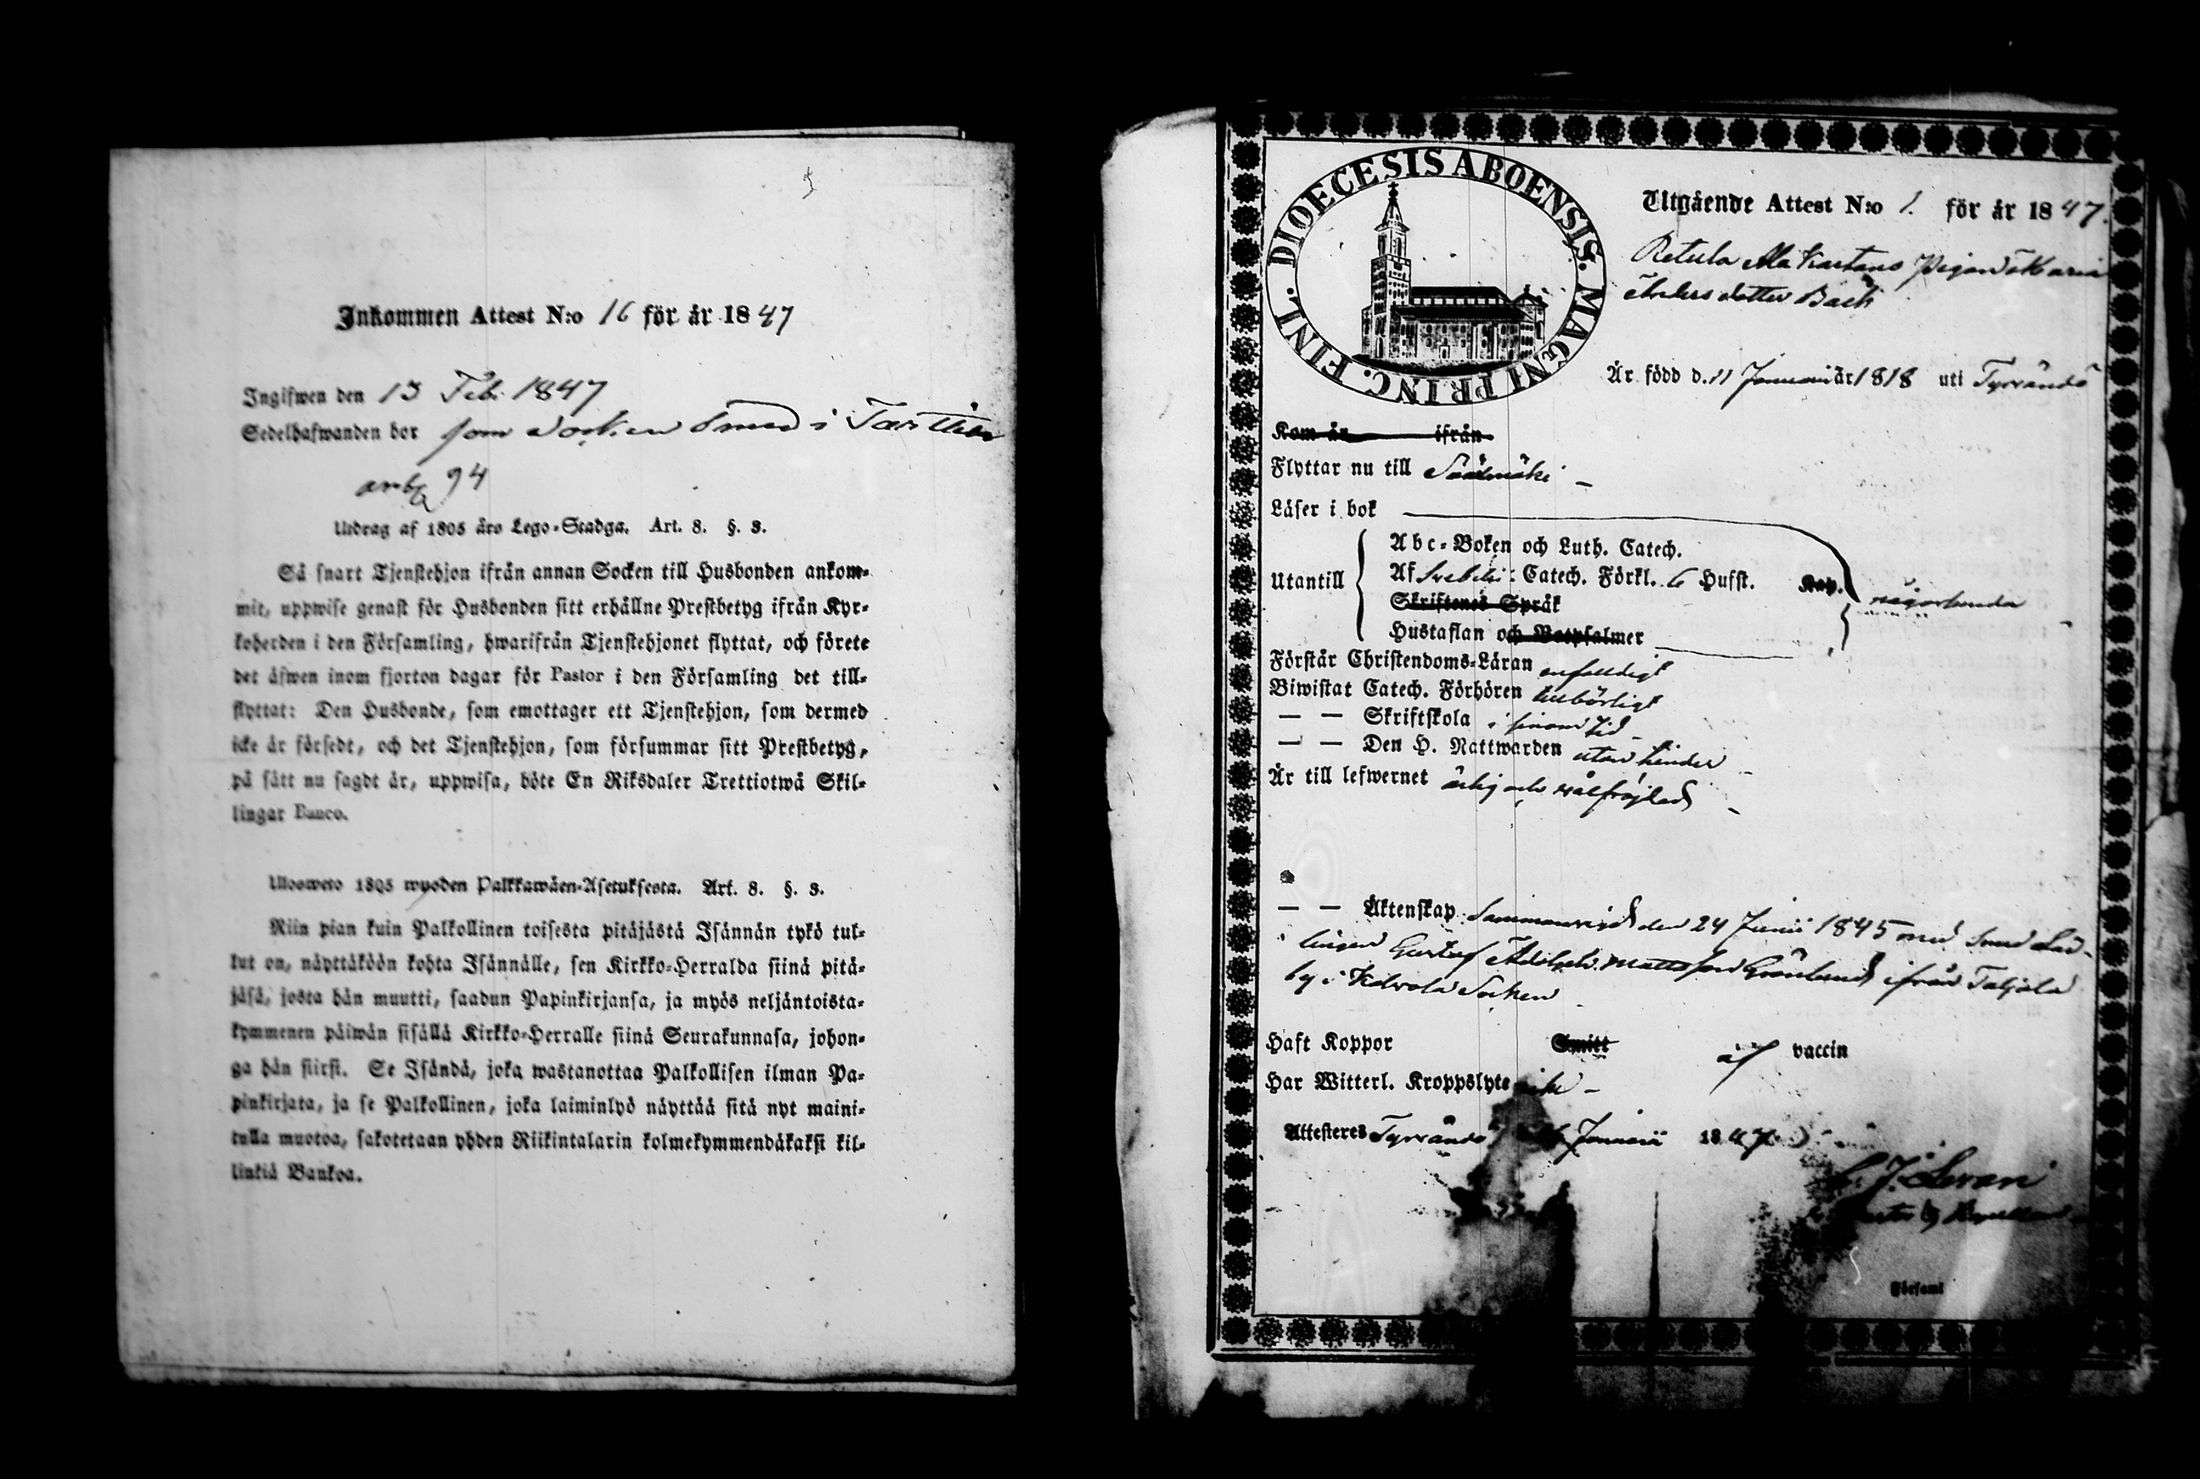 5
Inkommen Attest N:o 16 för år 1847
Ingifwen den 13 Feb. 1847
Sedelhafwanden bor som Socken Smed i
94
Utdrag af 1805 års Lego-Stadga. Art. 8. §. 3.
Så snart Tjenstehjon ifrån annan Socken till Husbonden ankom-
mit, uppwise genast för Husbonden sitt erhållne Prestbetyg ifrån Kyr-
koherden i den Församling, hwarifrån Tjenstehjonet flyttat, och förete
det äfwen inom fjorton dagar för Pastor i den Församling det till-
flyttat: Den Husbonde, som emottager ett Tjenstehjon, som dermed
icke är försedt, och det Tjenstehjon, som försummar sitt Prestbetyg,
på sätt nu sagdt är, uppwisa, böte En Riksdaler Trettiotwå Skil-
lingar Banco.
Ulosweto 1805 wuoden Palkkawäen-Asetuksesta. Art. 8. §. 3.
Niin pian kuin Palkollinen toisesta pitäjästä Isännän tykö tul-
lut on, näyttäköön kohta Isännälle, sen Kirkko-Herralda siinä pitä-
jäsä, josta hän muutti, saadun Papinkirjansa, ja myös neljäntoista-
kymmenen päiwän sisällä Kirkko-Herralle siinä Seurakunnasa, johon-
ga hän siirsi. Se Isändä, joka wastanottaa Palkollisen ilman Pa-
pinkirjata, ja se Palkollinen, joka laiminlyö näyttää sitä nyt maini-
tulla muotoa, sakotetaan yhden Riikintalarin kolmekymmendäkaksi kil-
linkiä Bankoa.
DIOECESIS ABOENSIS. MAGNI PRINC. FINL.
Utgående Attest N:o 1. för år 1847.
Retula Pigan Maria
Andersdotter Bäck
Är född d. 11 Januari år 1818 uti Tyrvändö
Kom år ifrån
Flyttar nu till Sääksmäki
Läser i bok
Utantill
Abc-Boken och Luth. Catech.
Af Svebelii Catech. Förkl. 6 Hufst. Kap.
Skriftenes Språk
Hustaflan och Botpsalmer
någorlunda
Förstår Christendoms-Läran enfaldigt
Biwistat Catech. Förhören tillbörligt
— — Skriftskola i sinom tid
— — Den H. Nattwarden utan hinder
Är till lefwernet ärlig och wälfrejdad
— — Äktenskap Sammanvigd den 24 Junii 1845 med Smed Lär-
lingen Gustaf Adolph Mattsson Grönlund ifrån Taljala
by i Kalvola Socken
Haft Koppor Smitt af vaccin
Har Witterl. Kroppslyte icke
Attesteres Tyrvändö Januarii 1847
J.
Församl